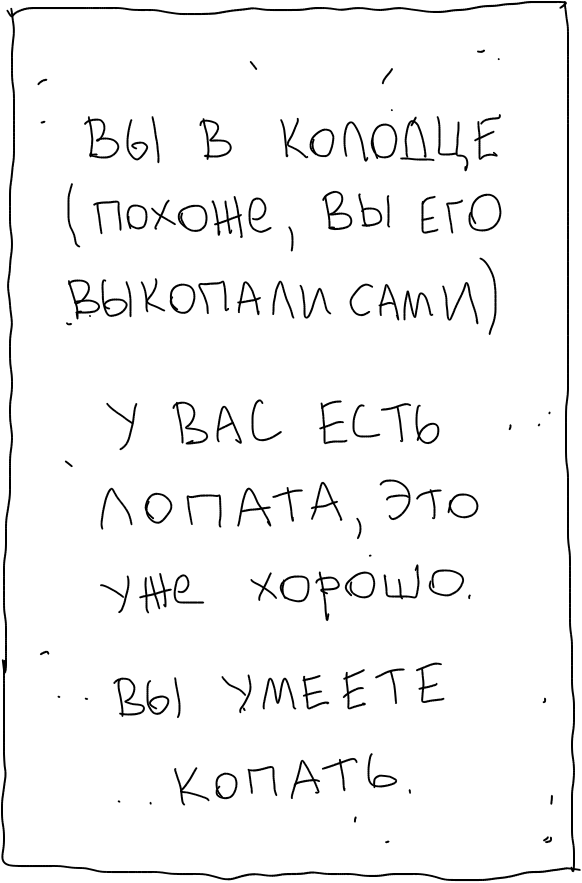 ВЫ В КОЛОДЦЕ
(ПОХОЖЕ, ВЫ ЕГО
ВЫКОПАЛИ САМИ)
У ВАС ЕСТЬ
ЛОПАТА, ЭТО
УЖЕ ХОРОШО.
ВЫ УМЕЕТЕ
КОПАТЬ.